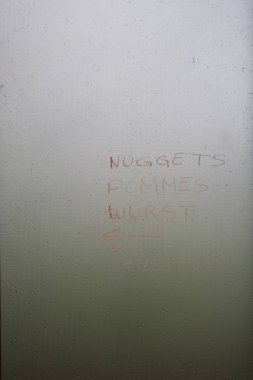 NUGGETS
POMMES
WURST